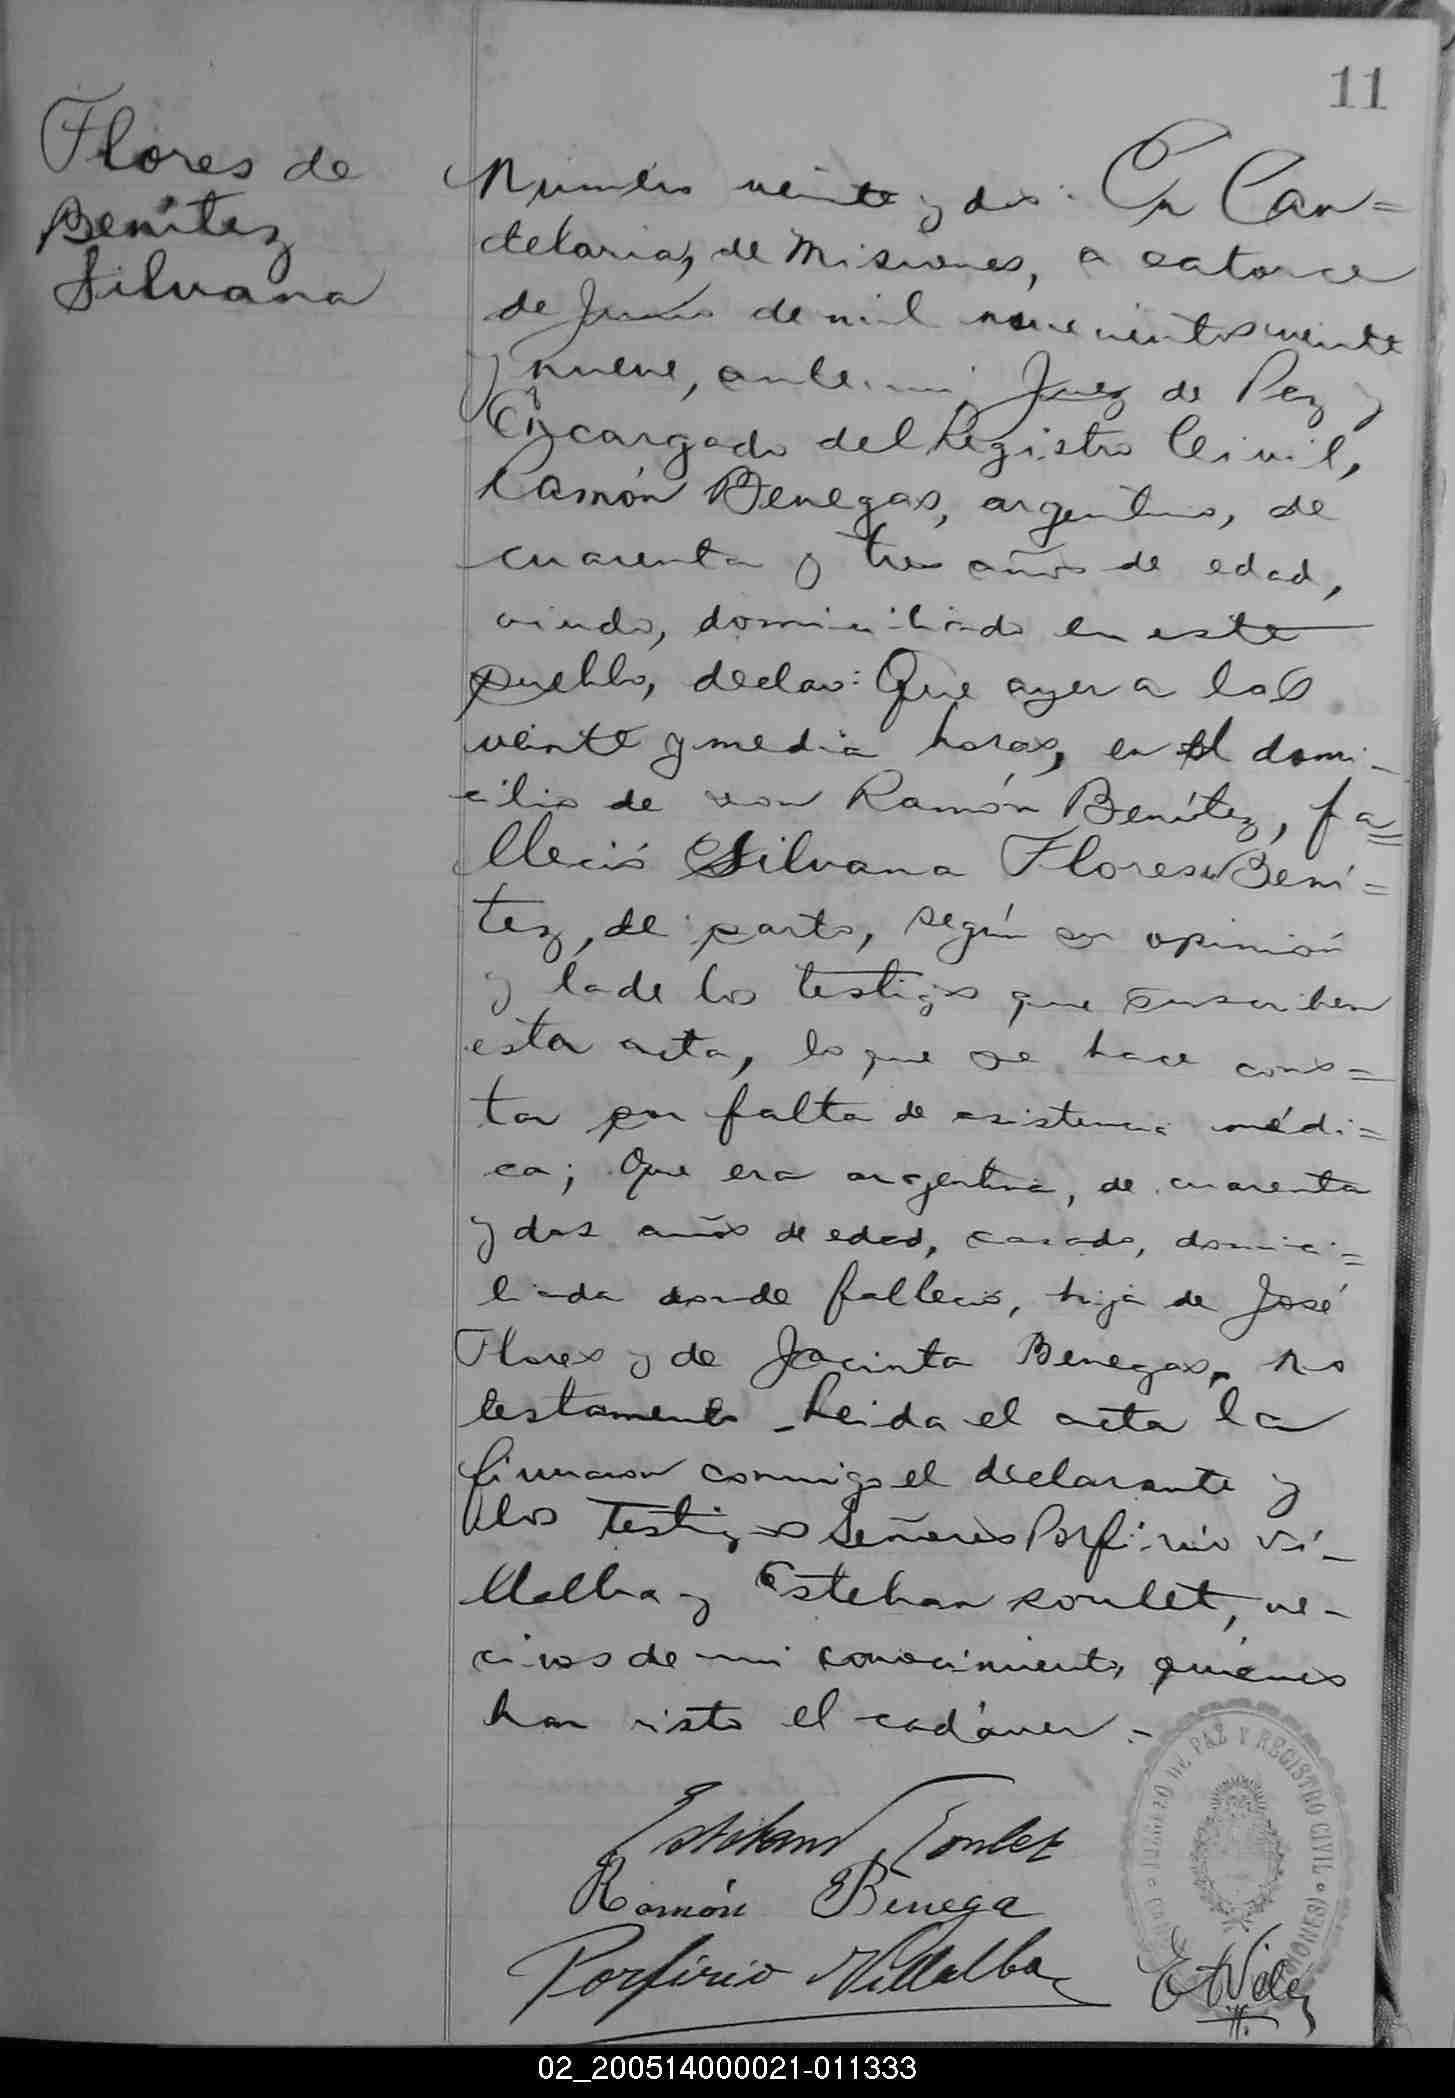 11
Flores de
Benítez
Silvana
Número veinte y dos: En Can=
delaria, de Misiones, a catorce
de Junio de mil novecientos veinte
y nueve, ante mi, Juez de Paz y
Encargado del Registro Civil,
Ramón Benegas, argentino, de
cuarenta y tres años de edad,
viudo, domiciliado en este
pueblo, declaró: Que ayer a las
veinte y media horas, en el domi-
cilio de don Ramón Benítez, fa=
lleció Silvana Flores de Bení=
tez, de parto, según su opinión
y la de los testigos que suscriben
esta acta, lo que se hace cons=
tar por falta de asistencia médi=
ca; Que era argentina, de cuarenta
y dos años de edad, casada, domici=
liada donde falleció, hija de José
Flores y de Jacinta Benegas, no
testamentó - Leida el acta la
firmaron conmigo el declarante y
los testigos Señores Porfirio Vi-
llalba y Esteban Loulet, ve-
cinos de mi conocimiento, quiénes
han visto el cadáver.-
Esteban
Ramón Benega
Porfirio Villalba
JUZGADO DE PAZ Y REGISTRO CIVIL
02_200514000021-011333